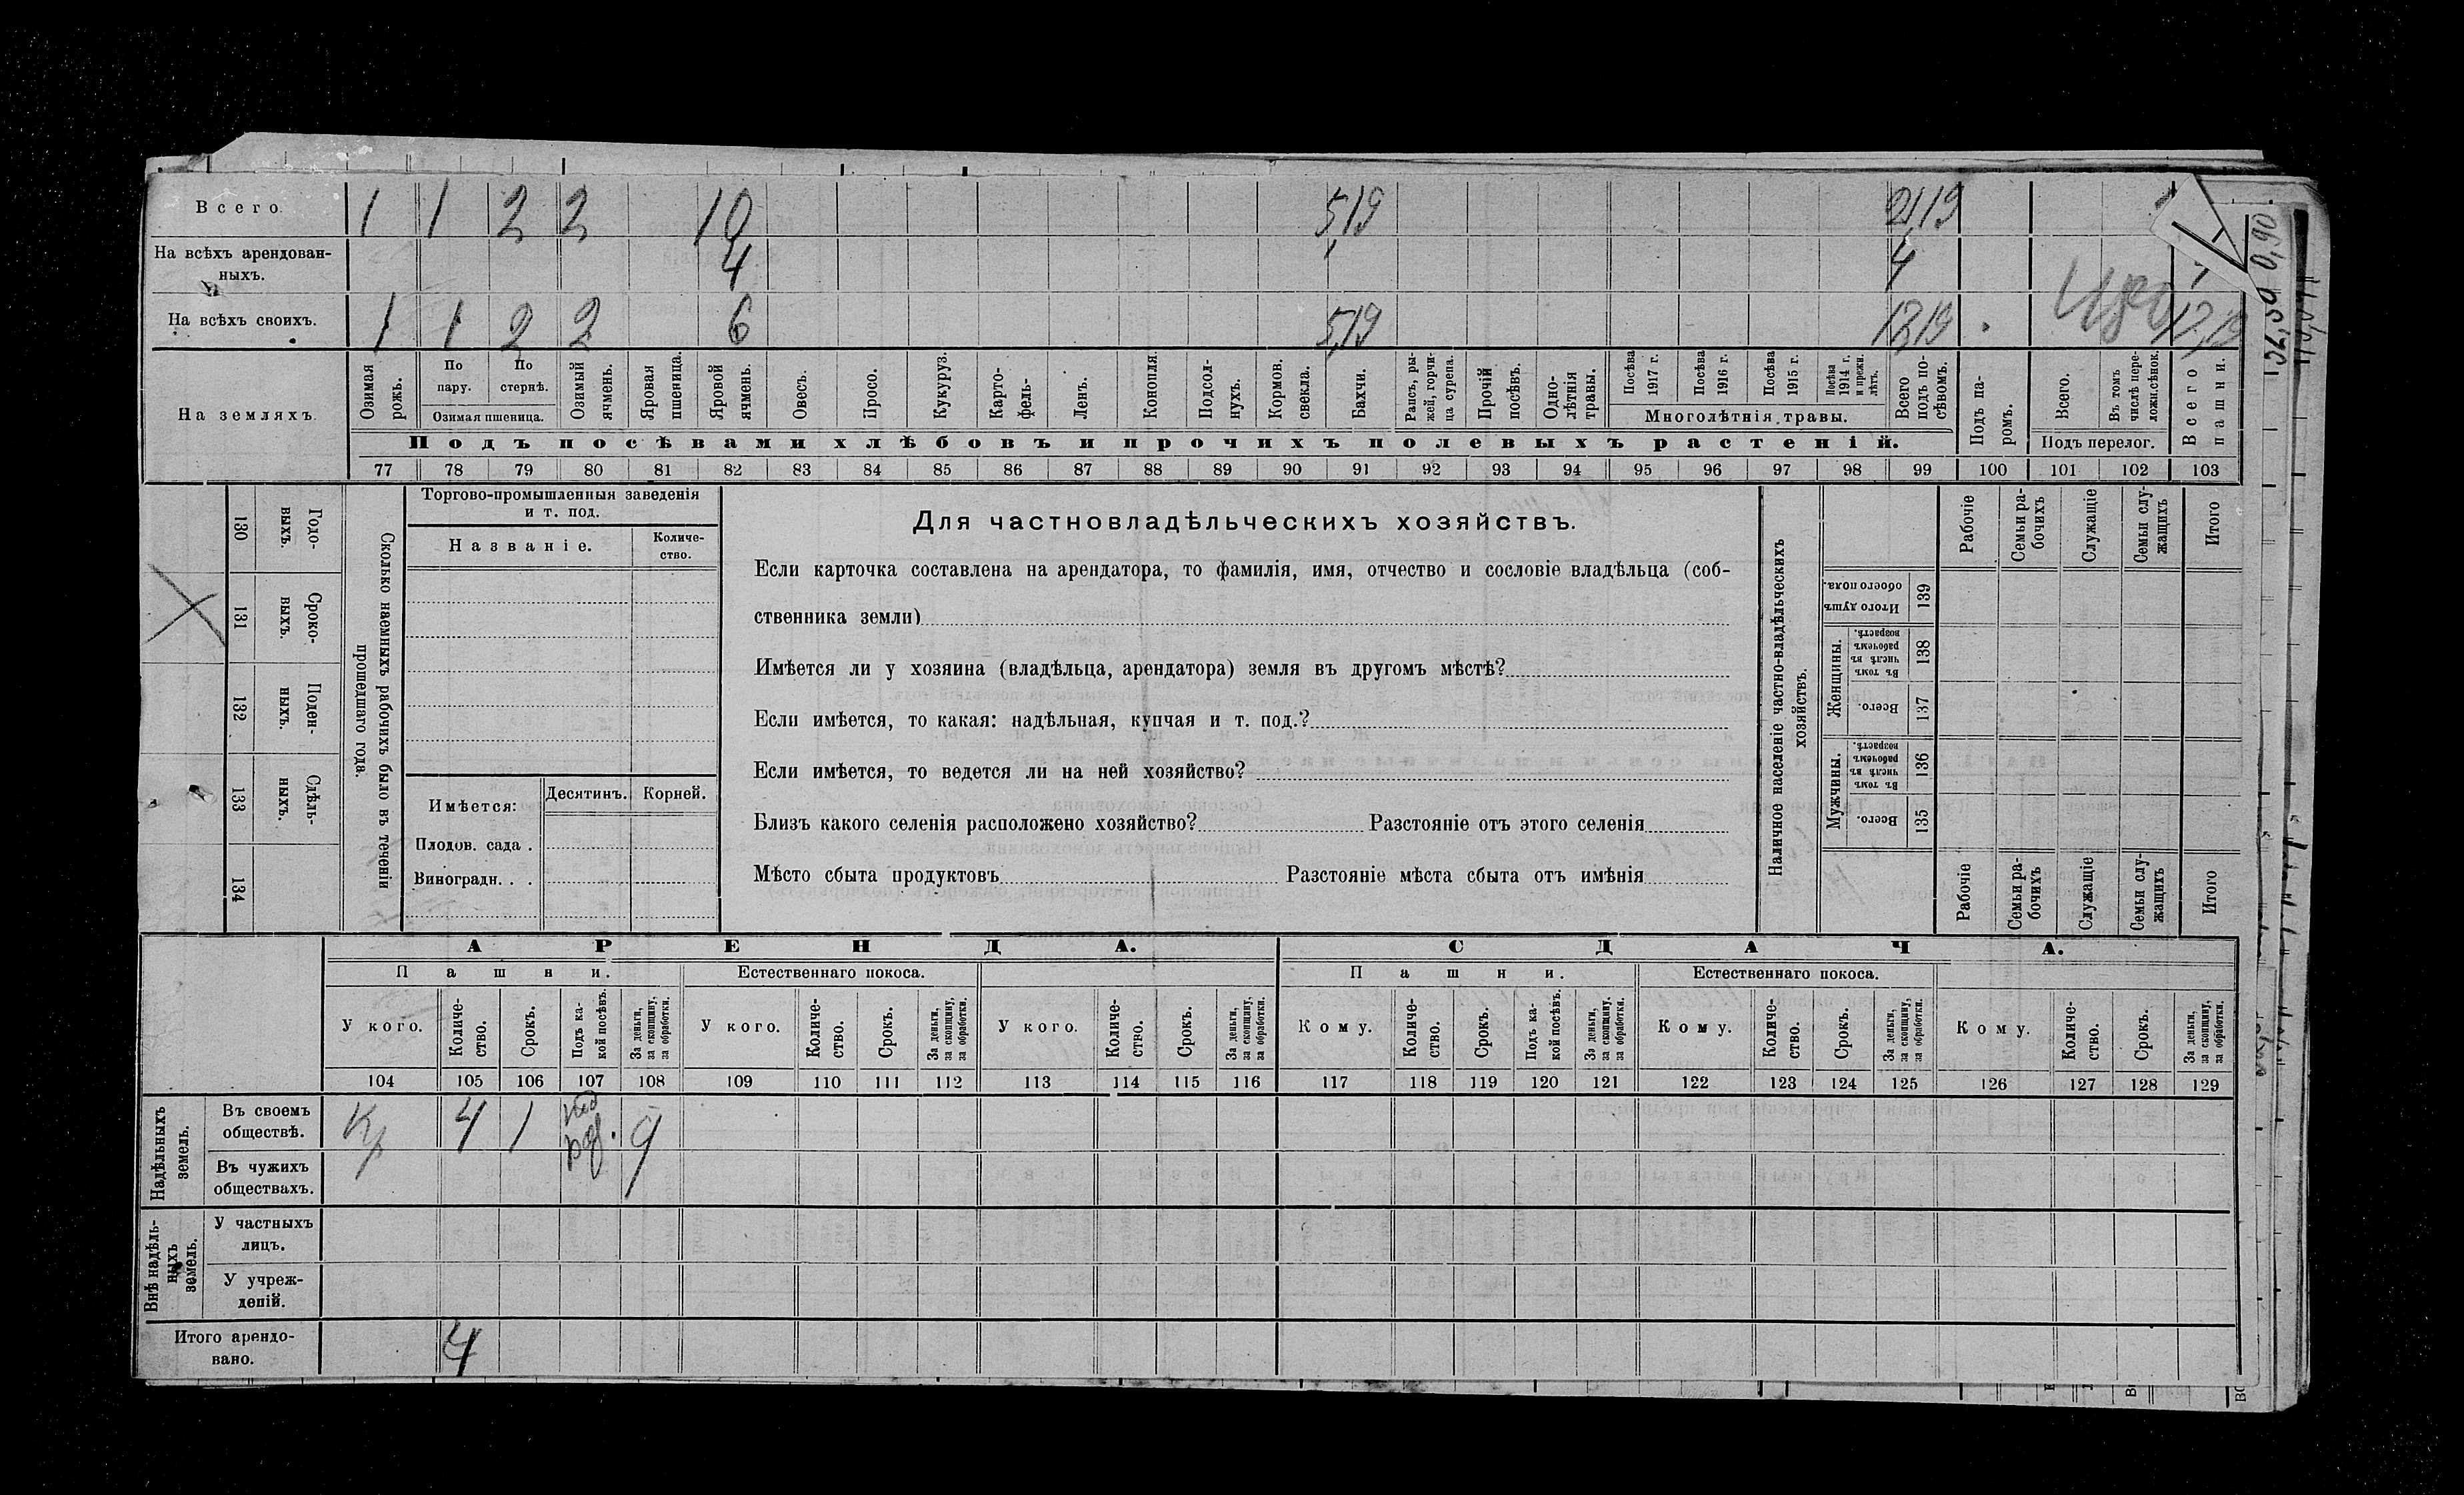 Всего. 1 1 2 2 10 5,19 21,19
На всѣхъ арендован-
ныхъ. 4 4
На всѣхъ своихъ. 1 1 2 2 6 5,19 17,19
На земляхъ.
Озимая рожь.
По пару.
По стернѣ.
Озимая пшеница.
Озимый ячмень.
Яровая пшеница.
Яровой ячмень.
Овесъ.
Просо.
Кукуруз.
Карто-
фель.
Ленъ.
Конопля.
Подсол-
нухъ.
Кормов.
свекла.
Бахчи.
Рапсъ, ры-
жей, горчи-
ца сурепа.
Прочій
посѣвъ.
Одно-
лѣтнія
травы.
Посѣва 1917 г.
Посѣва 1916 г.
Посѣва 1915 г.
Посѣва 1914 г. и прежн. лѣтъ.
Многолѣтнія травы.
Всего подъ по-
сѣвомъ.
Подъ па-
ромъ.
Всего.
Въ томъ числѣ пере-
ложн.сѣнок.
Подъ перелог.
Всего пашни.
Подъ посѣвами хлѣбовъ и прочихъ полевыхъ растеній.
77 78 79 80 81 82 83 84 85 86 87 88 89 90 91 92 93 94 95 96 97 98 99 100 101 102 103
130 Годо-
выхъ.
131 Сроко-
выхъ.
132 Поден-
ныхъ.
133 Сдѣль-
ныхъ.
134
Сколько наемныхъ рабочихъ было въ теченіи
прошедшаго года.
Торгово-промышленныя заведенія
и т. под.
Названіе.
Количе-
ство.
Имѣется:
Десятинъ.
Корней.
Плодов. сада .
Виноградн. . .
Для частновладѣльческихъ хозяйствъ.
Если карточка составлена на арендатора, то фамилія, имя, отчество и сословіе владѣльца (соб-
ственника земли)
Имѣется ли у хозяина (владѣльца, арендатора) земля въ другомъ мѣстѣ?
Если имѣется, то какая: надѣльная, купчая и т. под.?
Если имѣется, то ведется ли на ней хозяйство?
Близъ какого селенія расположено хозяйство? Разстояніе отъ этого селенія
Мѣсто сбыта продуктовъ Разстояніе мѣста сбыта отъ имѣнія
Наличное населеніе частно-владѣльческихъ
хозяйствъ.
Рабочіе
Семьи ра-
бочихъ
Служащіе
Семьи слу-
жащихъ
Итого
Итого душъ обоего пола. 139
Женщины.
Въ томъ числѣ въ рабочемъ возрастѣ. 138
Всего. 137
Мужчины.
Въ томъ числѣ въ рабочемъ возрастѣ. 136
Всего. 135
Рабочіе
Семьи ра-
бочихъ
Служащіе
Семьи слу-
жащихъ
Итого
АРЕНДА. СДАЧА.
Пашни. Естественнаго покоса. Пашни. Естественнаго покоса.
У кого. Количе-
ство. Срокъ. Подъ ка-
кой посѣвъ. За деньги, за скопщину, за обработки.
У кого. Количе-
ство. Срокъ. За деньги, за скопщину, за обработки.
У кого. Количе-
ство. Срокъ. За деньги, за скопщину, за обработки.
Кому. Количе-
ство. Срокъ. Подъ ка-
кой посѣвъ. За деньги, за скопщину, за обработки.
Кому. Количе-
ство. Срокъ. За деньги, за скопщину, за обработки.
Кому. Количе-
ство. Срокъ. За деньги, за скопщину, за обработки.
104 105 106 107 108 109 110 111 112 113 114 115 116 117 118 119 120 121 122 123 124 125 126 127 128 129
Надѣльныхъ
земель.
Въ своемъ
обществѣ. Кр 4 1
Въ чужихъ
обществахъ.
Внѣ надѣль-
ныхъ
земель.
У частныхъ
лицъ.
У учреж-
деній.
Итого арендо-
вано. 4